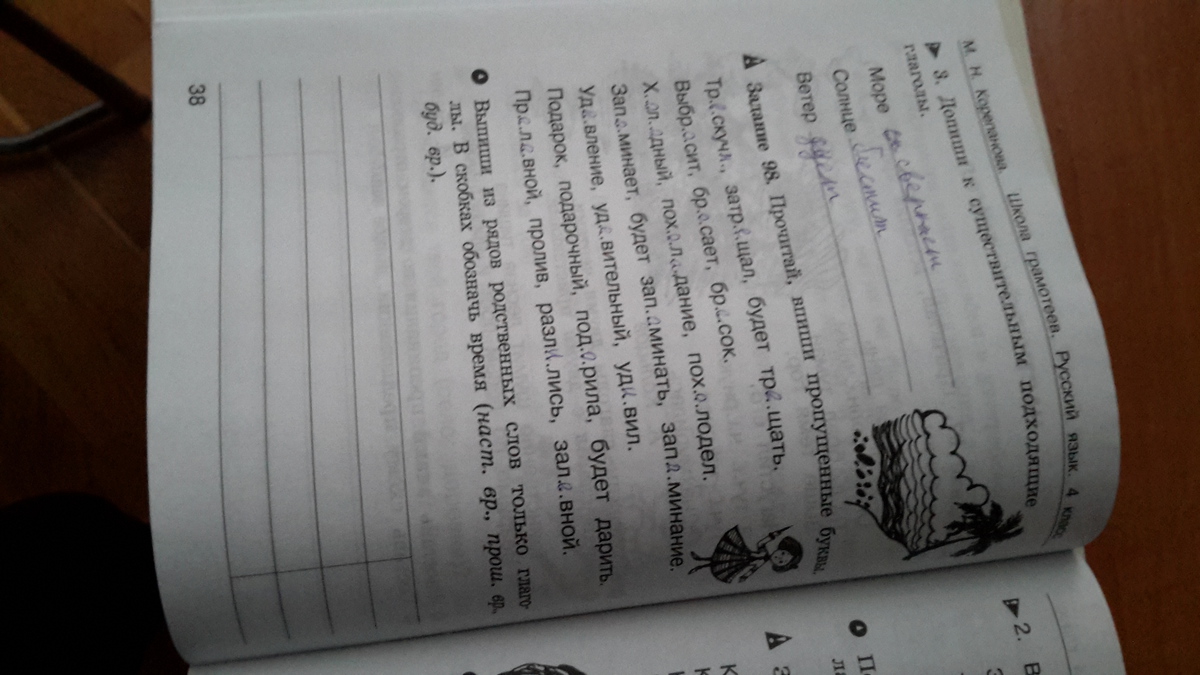 М. Н. Корепанова. Школа грамотеев. Русский язык. 4 класс
3. Допиши к существительным подходящие
глаголы.
Море сверкает
Солнце блестит
Ветер дует
Задание 98. Прочитай, впиши пропущенные буквы.
Тр.е.скучи, затр.е.щал, будет тр.е.щать.
Выбр.о.сит, бр.о.сает, бр.о.сок.
Х.о.л.о.дный, пох.о.л.о.дание, пох.о.лодел.
Зап.о.минает, будет зап.о.минать, зап.о.минание.
Уд.и.вление, уд.и.вительный, уд.и.вил.
Подарок, подарочный, под.о.рила, будет дарить.
Пр.о.л.и.вной, пролив, разл.и.лись, зал.и.вной.
Выпиши из рядов родственных слов только глаго-
лы. В скобках обозначь время (наст. вр., прош. вр.,
буд. вр.).
38
2. В